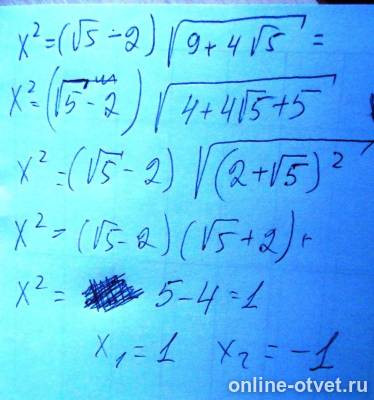 x² = (√5 - 2) √(9 + 4√5) =
x² = (√5 - 2) √(4 + 4√5 + 5)
x² = (√5 - 2) √((2 + √5)²)
x² = (√5 - 2) (√5 + 2)
x² = 5 - 4 = 1
x₁ = 1 x₂ = -1
online-otvet.ru